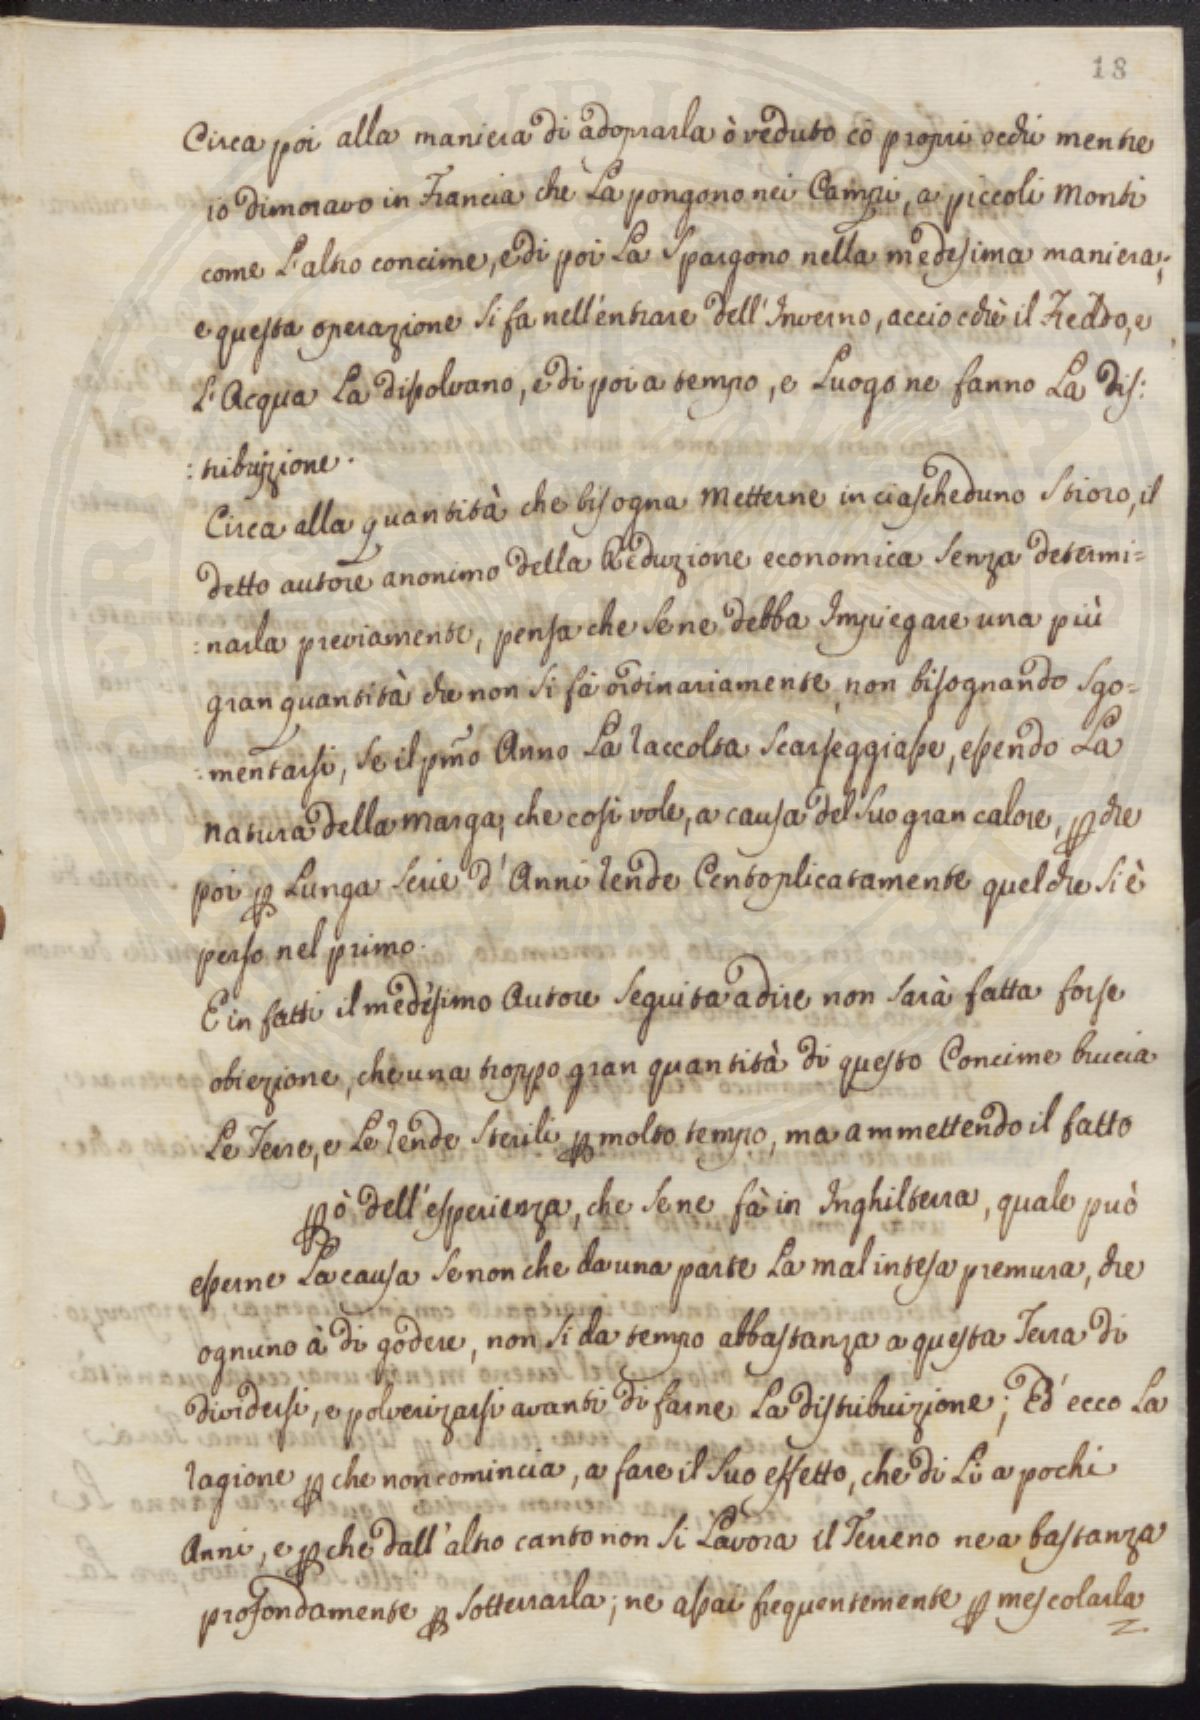 18
Circa poi alla maniera di adoprarla ò veduto cò propri occhi mentre
io dimoravo in Francia che La pongono nei Campi, a piccoli Monti
come L'altro concime, e di poi La Spargono nella medesima maniera;
e questa operazione Si fa nell'entrare dell'Inverno, acciocchè il Freddo, e
L'Acqua La dissolvano, e di poi a tempo, e Luogo ne fanno La Dis:
:tribuizione.
Circa alla quantità che bisogna Metterne in ciascheduno Stioro, il
detto autore anonimo della Reduzione economica Senza determi=
:narla previamente, pensa che Se ne debba Impiegare una più
gran quantità che non Si fà ordinariamente, non bisognando Sgo=
:mentarsi, Se il pmo Anno La raccolta Scarseggiasse, essendo La
natura della Marga, che così vole, a causa del Suo gran calore, p che
poi p Lunga Serie d'Anni rende Centoplicatamente quel che Si è
perso nel primo.
E in fatti il medesimo Autore Seguita a dire non Sarà fatta forse
obiezione, che una troppo gran quantità di questo Concime brucia
Le Terre, e Le rende Sterili p molto tempo, ma ammettendo il fatto
pò dell'esperienza, che Se ne fà in Inghilterra, quale può
esserne La causa Se non che da una parte La mal intesa premura, che
ognuno à di godere, non Si da tempo abbastanza a questa Terra di
dividersi, e polverizarsi avanti di farne La distribuizione; Ed ecco La
ragione p che non comincia, a fare il Suo effetto, che di Lì a pochi
Anni, e p che dall'altro canto non Si Lavora il Terreno ne a bastanza
profondamente p Sotterrarla; ne assai frequentemente p mescolarla